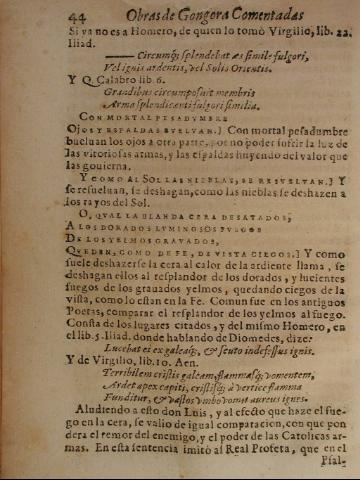 44 Obras de Gongora Comentadas
Si ya no es a Homero, de quien lo tomò Virgilio, lib. 22.
Iliad.
Circumq; splendebat æs simile fulgori,
Vel ignis ardentis, vel Solis Orientis.
Y Q. Calabro lib. 6.
Grandibus circumposuit membris
Arma splendicanti fulgori similia.
CON MORTAL PESADVMBRE
OJOS Y ESPALDAS BVELVAN.] Con mortal pesadumbre
bueluan los ojos a otra parte, por no poder sufrir la luz de
las vitoriosas armas, y las espaldas huyendo del valor que
las gouierna.
Y COMO AL SOL LAS NIEBLAS, SE RESVELVAN.] Y
se resueluan, se deshagan, como las nieblas se deshazen a
los rayos del Sol.
O, QVAL LA BLANDA CERA DESATADOS,
A LOS DORADOS LVMINOSOS FVEGOS
DE LOS YELMOS GRAVADOS,
QVEDEN, COMO DE FE, DE VISTA CIEGOS.] Y como
suele deshazerse la cera al calor de la ardiente llama, se
deshagan ellos al resplandor de los dorados, y lucientes
fuegos de los grauados yelmos, quedando ciegos de la
vista, como lo estan en la Fe. Comun fue en los antiguos
Poetas, comparar el resplandor de los yelmos al fuego.
Consta de los lugares citados, y del mismo Homero, en
el lib. 5. Iliad. donde hablando de Diomedes, dize:
Lucebat ei ex galeaq;, & scuto indefessus ignis.
Y de Virgilio, lib. 10. Aen.
Terribilem cristis galeam, flammasq; vomentem,
Ardet apex capiti, cristisq; à vertice flamma
Funditur, & vastos vmbo vomit aureus ignes.
Aludiendo a esto don Luis, y al efecto que haze el fue-
go en la cera, se valio de igual comparacion, con que pon
dera el remor del enemigo, y el poder de las Catolicas ar-
mas. En esta sentencia imitò al Real Profeta, que en el
Psal-